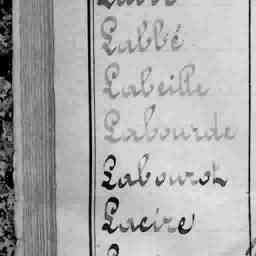 Labbé
Labeille
Labourde
Labourot
Lacire